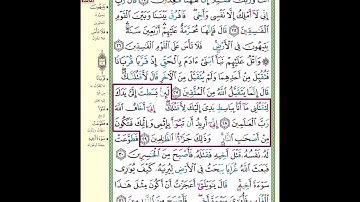 إِنِّي لَآ أَمْلِكُ إِلَّا نَفْسِي وَأَخِي ۖ فَٱفْرُقْ بَيْنَنَا وَبَيْنَ ٱلْقَوْمِ
ٱلْفَٰسِقِينَ ٢٥ قَالَ فَإِنَّهَا مُحَرَّمَةٌ عَلَيْهِمْ ۛ أَرْبَعِينَ سَنَةً ۛ
يَتِيهُونَ فِي ٱلْأَرْضِ ۚ فَلَا تَأْسَ عَلَى ٱلْقَوْمِ ٱلْفَٰسِقِينَ ٢٦
وَٱتْلُ عَلَيْهِمْ نَبَأَ ٱبْنَيْ ءَادَمَ بِٱلْحَقِّ إِذْ قَرَّبَا قُرْبَانًا
فَتُقُبِّلَ مِنْ أَحَدِهِمَا وَلَمْ يُتَقَبَّلْ مِنَ ٱلْءَاخَرِ قَالَ لَأَقْتُلَنَّكَ ۖ
قَالَ إِنَّمَا يَتَقَبَّلُ ٱللَّهُ مِنَ ٱلْمُتَّقِينَ ٢٧ لَئِنۢ بَسَطتَ إِلَيَّ يَدَكَ
لِتَقْتُلَنِي مَآ أَنَا۠ بِبَاسِطٍ يَدِيَ إِلَيْكَ لِأَقْتُلَكَ ۖ إِنِّيٓ أَخَافُ ٱللَّهَ
رَبَّ ٱلْعَٰلَمِينَ ٢٨ إِنِّيٓ أُرِيدُ أَن تَبُوٓأَ بِإِثْمِي وَإِثْمِكَ فَتَكُونَ
مِنْ أَصْحَٰبِ ٱلنَّارِ ۚ وَذَٰلِكَ جَزَٰٓؤُا۟ ٱلظَّٰلِمِينَ ٢٩ فَطَوَّعَتْ
لَهُۥ نَفْسُهُۥ قَتْلَ أَخِيهِ فَقَتَلَهُۥ فَأَصْبَحَ مِنَ ٱلْخَٰسِرِينَ ٣٠
فَبَعَثَ ٱللَّهُ غُرَابًا يَبْحَثُ فِي ٱلْأَرْضِ لِيُرِيَهُۥ كَيْفَ يُوَٰرِي
سَوْءَةَ أَخِيهِ ۚ قَالَ يَٰوَيْلَتَىٰٓ أَعَجَزْتُ أَنْ أَكُونَ مِثْلَ هَٰذَا